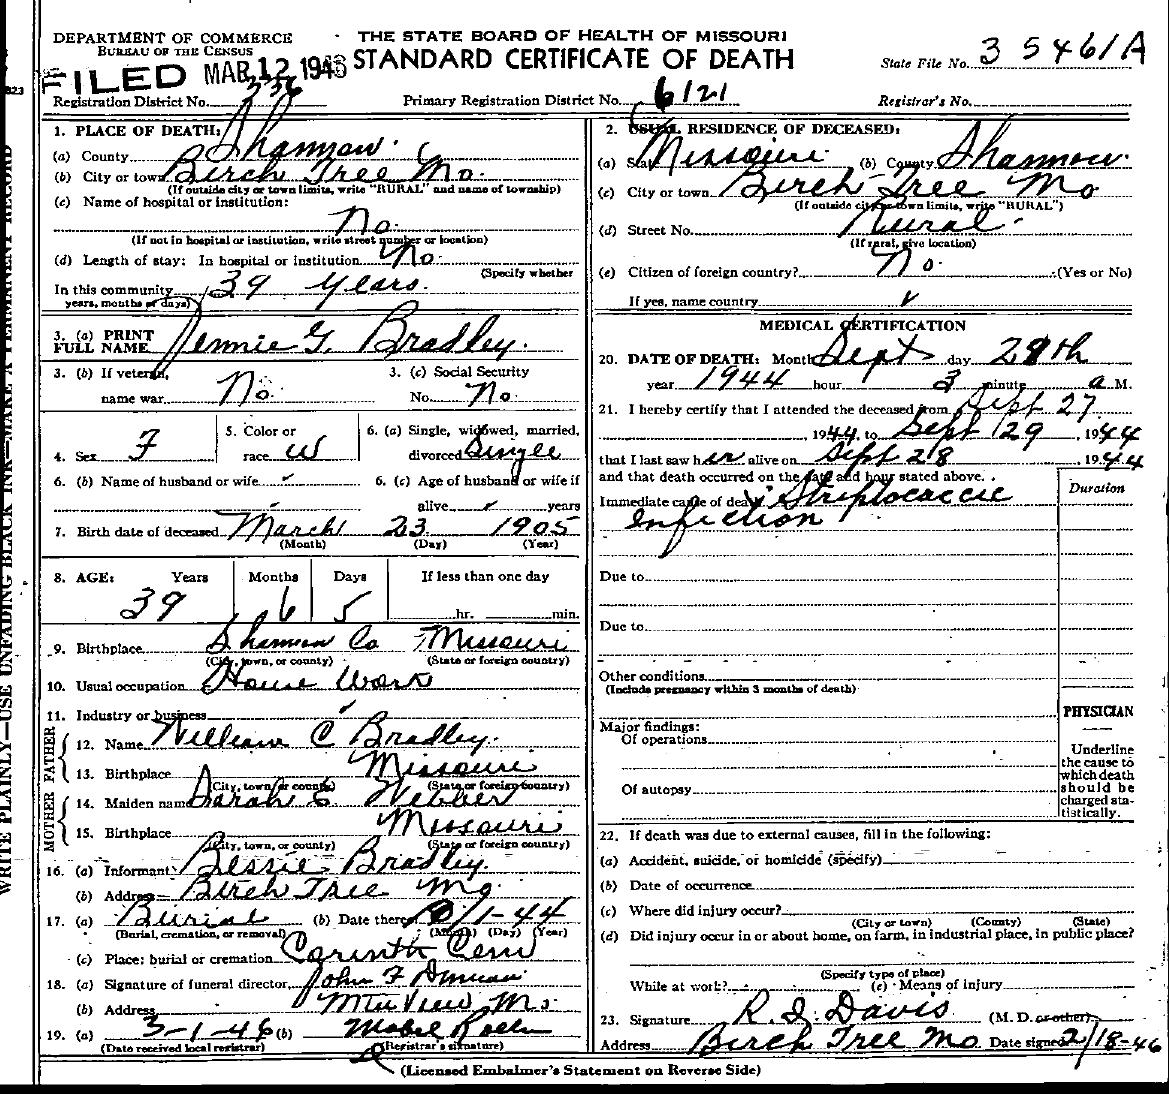 DEPARTMENT OF COMMERCE
BUREAU OF THE CENSUS
THE STATE BOARD OF HEALTH OF MISSOURI
STANDARD CERTIFICATE OF DEATH
FILED MAR 12 1946
State File No. 35461A
Registration District No. 336
Primary Registration District No. 6121
Registrar's No.
WRITE PLAINLY—USE UNFADING BLACK INK—MAKE A PERMANENT RECORD
1. PLACE OF DEATH:
(a) County Shannon
(b) City or town Birch Tree Mo.
(If outside city or town limits, write "RURAL" and name of township)
(c) Name of hospital or institution:
No.
(If not in hospital or institution, write street number or location)
(d) Length of stay: In hospital or institution No.
(Specify whether
In this community 39 years.
years, months or days)
3. (a) PRINT FULL NAME Jennie G. Bradley.
3. (b) If veteran, name war No.
3. (c) Social Security No. No.
4. Sex F
5. Color or race W
6. (a) Single, widowed, married, divorced Single
6. (b) Name of husband or wife
6. (c) Age of husband or wife if alive years
7. Birth date of deceased March 23 1905
(Month) (Day) (Year)
8. AGE: Years Months Days If less than one day
39 6 5 hr. min.
9. Birthplace Shannon Co Missouri
(City, town, or county) (State or foreign country)
10. Usual occupation House Work
11. Industry or business
FATHER
12. Name William C Bradley.
13. Birthplace Missouri
(City, town, or county) (State or foreign country)
MOTHER
14. Maiden name Sarah E Webber
15. Birthplace Missouri
(City, town, or county) (State or foreign country)
16. (a) Informant Bessie Bradley.
(b) Address Birch Tree Mo.
17. (a) Burial (b) Date thereof 10/1-44
(Burial, cremation, or removal) (Month) (Day) (Year)
(c) Place: burial or cremation Corinth Cem
18. (a) Signature of funeral director John F Duncan
(b) Address Mtn View Mo.
19. (a) 3-1-46 (b) Mabel
(Date received local registrar) (Registrar's signature)
2. USUAL RESIDENCE OF DECEASED:
(a) State Missouri (b) County Shannon.
(c) City or town Birch Tree Mo
(If outside city or town limits, write "RURAL")
(d) Street No. Rural
(If rural, give location)
(e) Citizen of foreign country? No. (Yes or No)
If yes, name country
MEDICAL CERTIFICATION
20. DATE OF DEATH: Month Sept day 28th
year 1944 hour 3 minute a M.
21. I hereby certify that I attended the deceased from Sept 27
, 1944, to Sept 29, 1944
that I last saw her alive on Sept 28, 1944
and that death occurred on the date and hour stated above.
Duration
Immediate cause of death Streptococcic
Infection
Due to
Due to
Other conditions
(Include pregnancy within 3 months of death)
Major findings:
Of operations
Of autopsy
PHYSICIAN
Underline
the cause to
which death
should be
charged sta-
tistically.
22. If death was due to external causes, fill in the following:
(a) Accident, suicide, or homicide (specify)
(b) Date of occurrence
(c) Where did injury occur?
(City or town) (County) (State)
(d) Did injury occur in or about home, on farm, in industrial place, in public place?
(Specify type of place)
While at work? (e) Means of injury
23. Signature R. I. Davis (M. D. or other)
Address Birch Tree Mo Date signed 2/18-46
(Licensed Embalmer's Statement on Reverse Side)